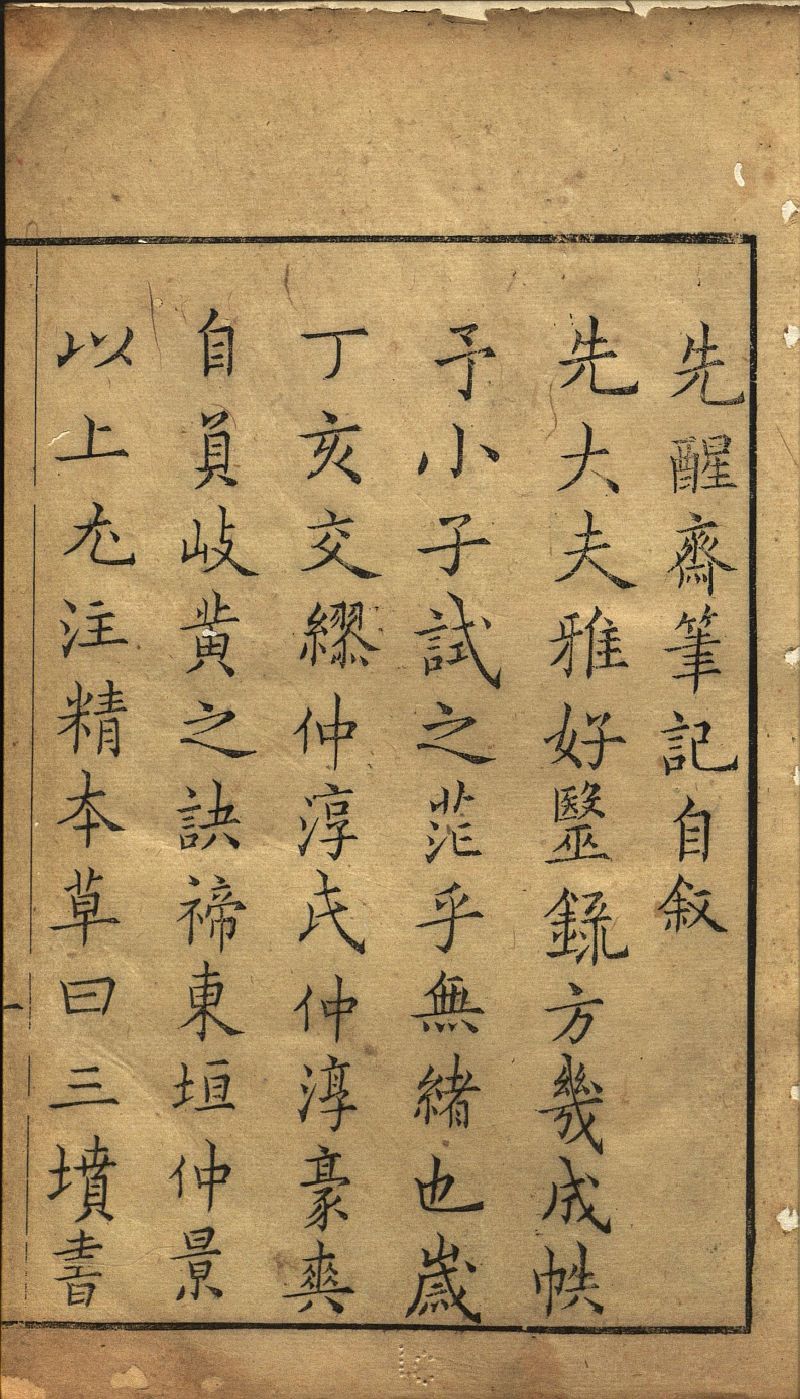 先醒齋筆記自敘
先大夫雅好毉錄方幾成帙
予小子試之茫乎無緒也歲
丁亥交繆仲淳氏仲淳豪爽
自負岐黄之訣禘東垣仲景
以上尤注精本草曰三墳書